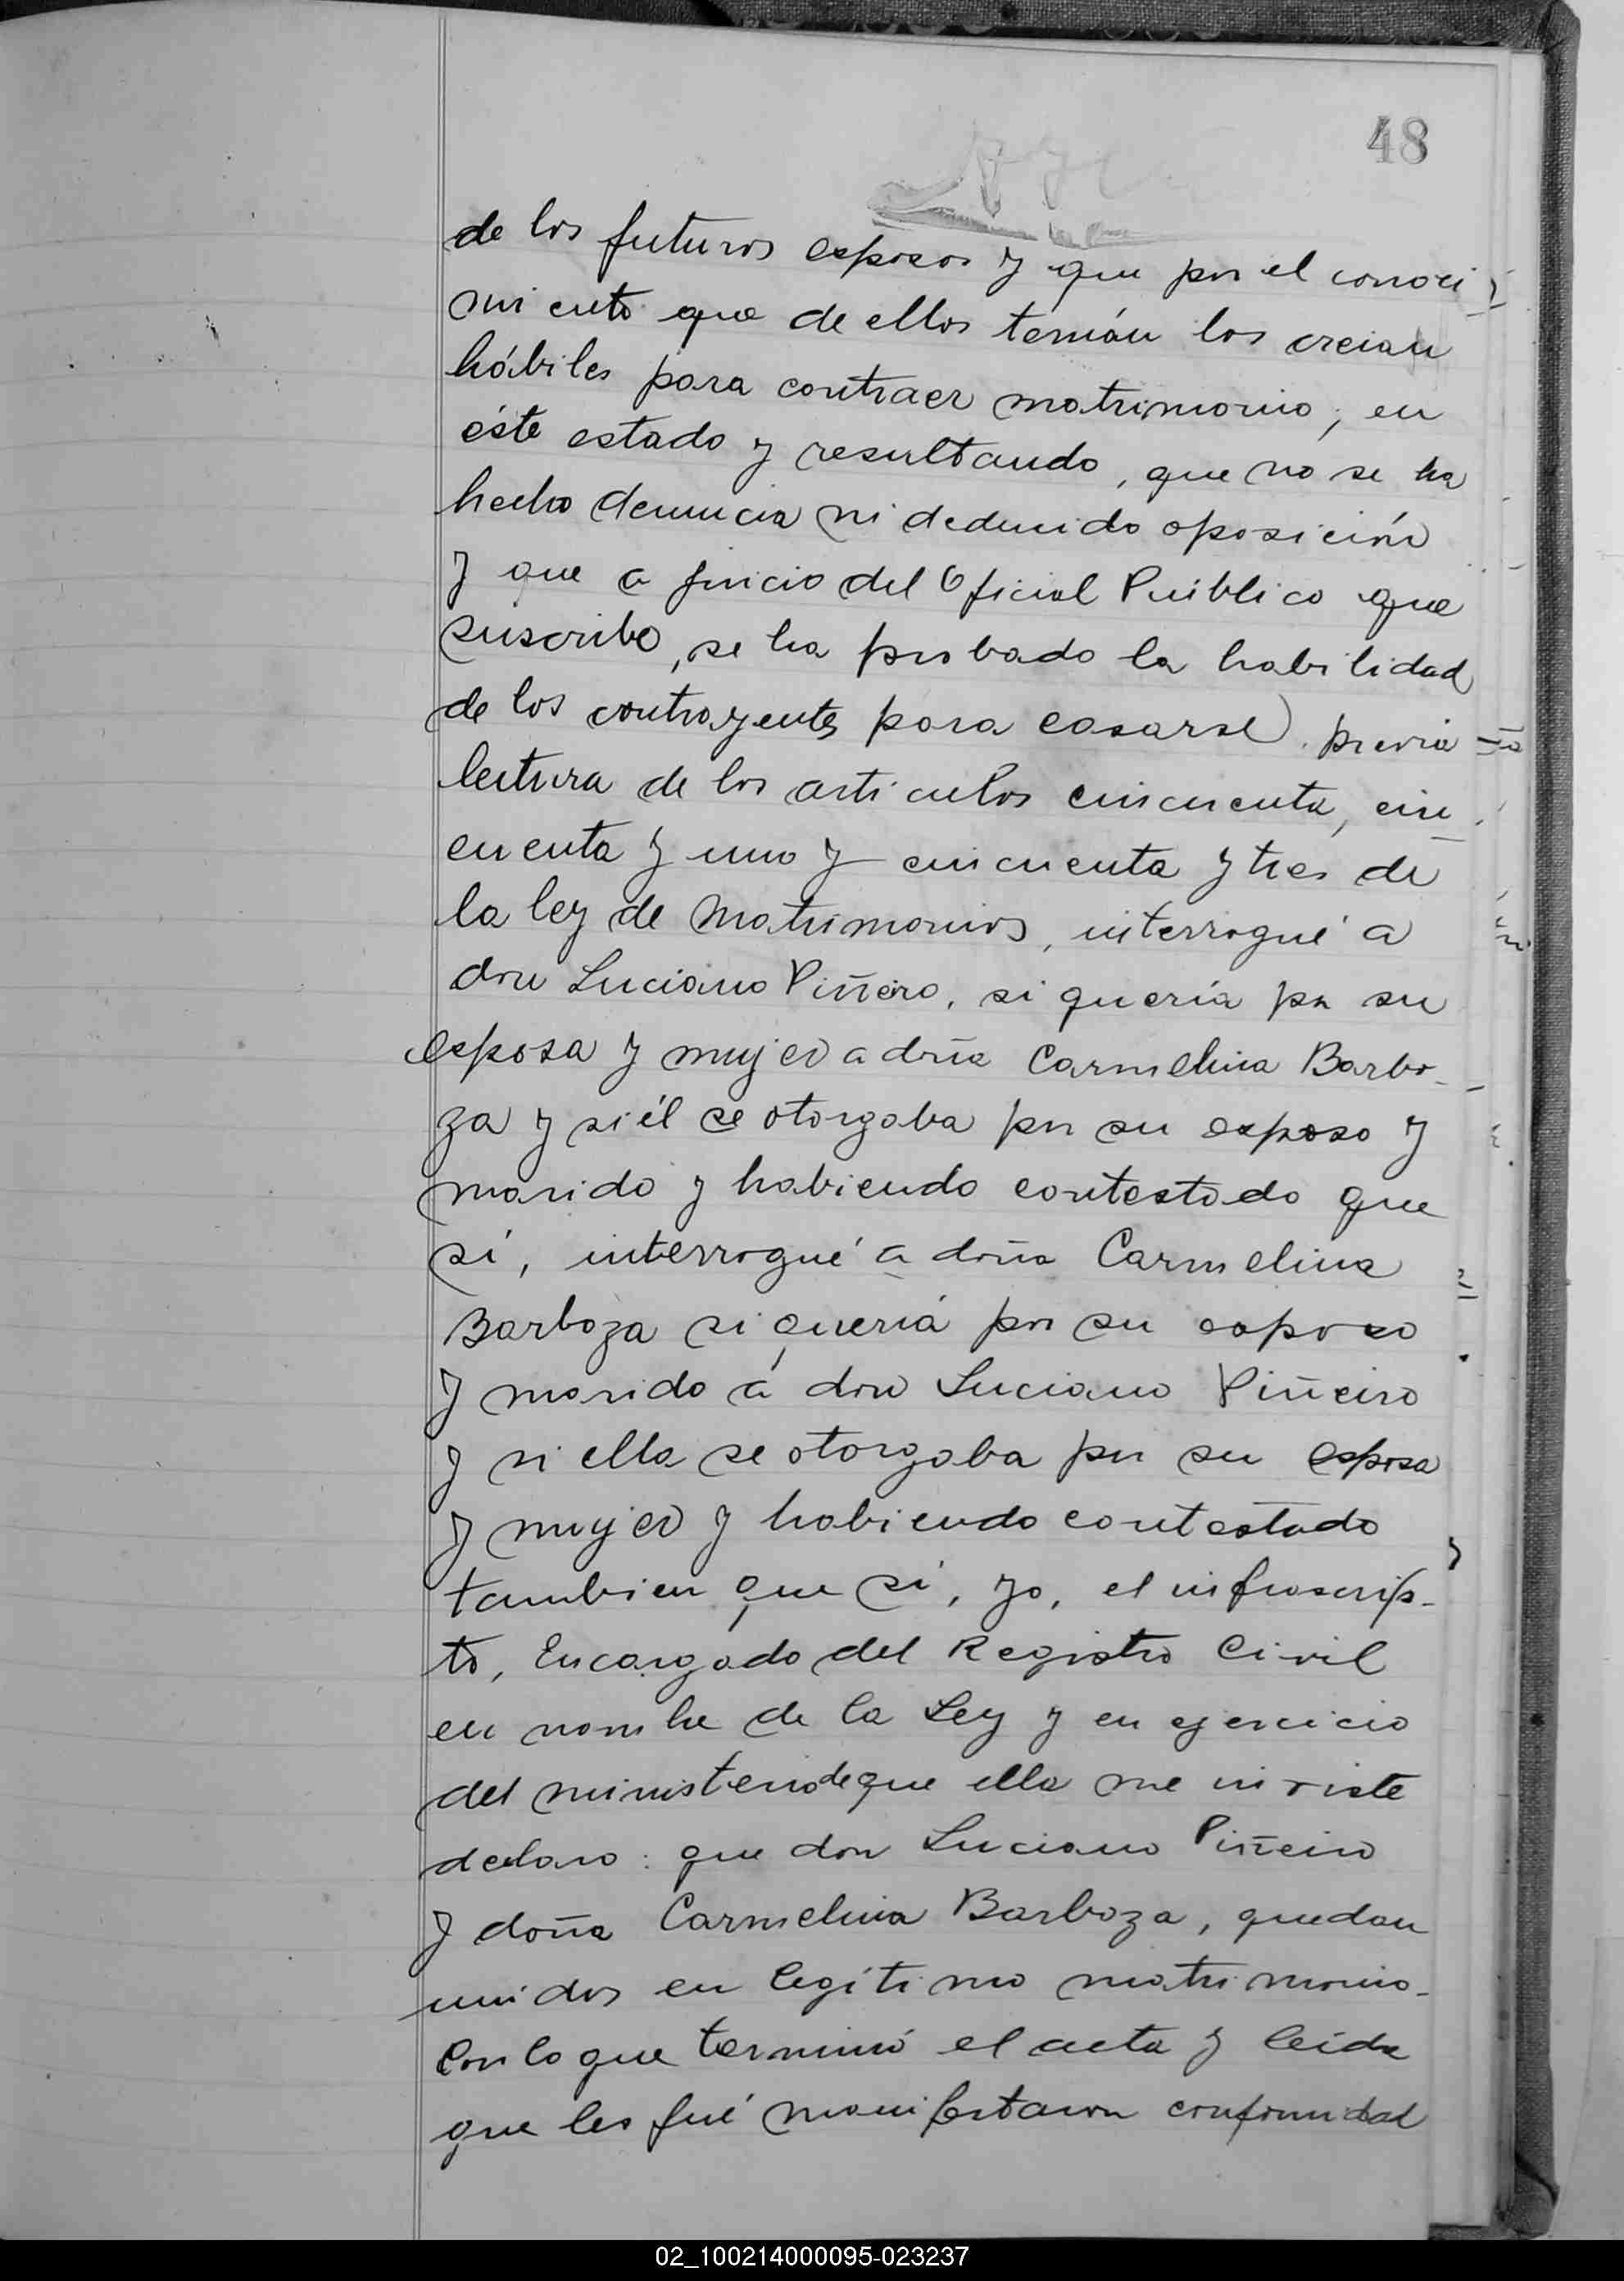 48
de los futuros esposos y que por el conoci
miento que de ellos tenían los creian
hábiles para contraer matrimonio; en
éste estado y resultando, que no se ha
hecho denuncia ni deducido oposición
y que a juicio del Oficial Público que
suscribe, se ha probado la habilidad
de los contrayentes para casarse, previa
lectura de los articulos cincuenta, cin
cuenta y uno y cincuenta y tres de
la ley de Matrimonios, interrogué a
don Luciano Piñeiro, si quería por su
esposa y mujer a doña Carmelina Barbo-
za y si él se otorgaba por su esposo y
marido y habiendo contestado que
sí, interrogué a doña Carmelina
Barboza si quería por su esposo
y marido á don Luciano Piñeiro
y si ella se otorgaba por su esposa
y mujer y habiendo contestado
tambien que sí, yo, el infrascrip-
to, Encargado del Registro Civil
en nombre de la Ley y en ejercicio
del ministerio de que ella me inviste
declaro: que don Luciano Piñeiro
y doña Carmelina Barboza, quedan
unidos en legítimo matrimonio-
Con lo que terminó el acta y leida
que les fué manifestaron conformidad
02_100214000095-023237